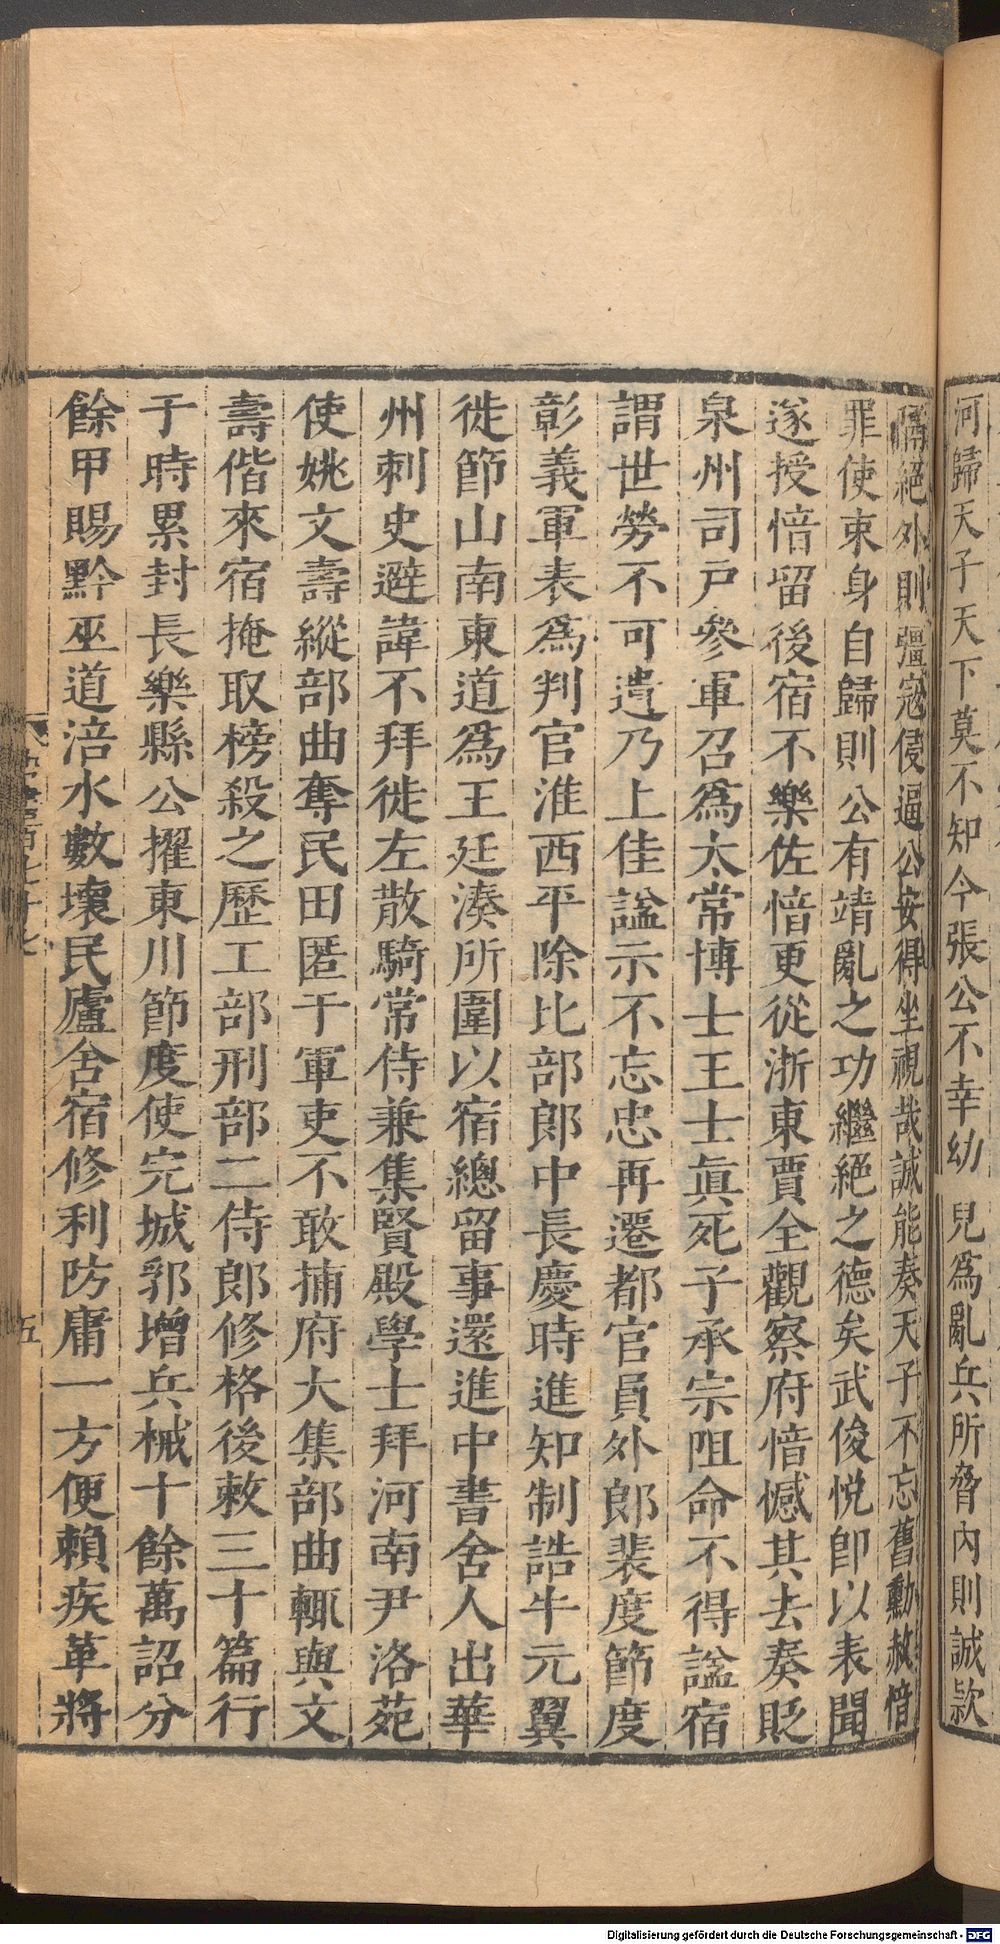 河歸天子天下莫不知今張公不幸幼兒爲亂兵所脅內則誠款
隔絕外則彊寇侵逼公安得坐視哉誠能奏天子不忘舊勳赦愔
罪使束身自歸則公有靖亂之功繼絕之德矣武俊悅卽以表聞
遂授愔留後宿不樂佐愔更從浙東賈全觀察府愔憾其去奏貶
泉州司戸參軍召爲太常博士王士眞死子承宗阻命不得謚宿
謂世勞不可遺乃上佳謚示不忘忠再遷都官員外郎裴度節度
彰義軍表爲判官淮西平除比部郎中長慶時進知制誥牛元翼
徙節山南東道爲王廷湊所圍以宿總留事還進中書舍人出華
州刺史避諱不拜徙左散騎常侍兼集賢殿學士拜河南尹洛苑
使姚文壽縱部曲奪民田匿于軍吏不敢捕府大集部曲輒與文
壽偕來宿掩取榜殺之歷工部刑部二侍郎修格後敕三十篇行
于時累封長樂縣公擢東川節度使完城郛增兵械十餘萬詔分
餘甲賜黔巫道涪水數壞民廬舍宿修利防庸一方便賴疾革將
五
Digitalisierung gefördert durch die Deutsche Forschungsgemeinschaft - DFG